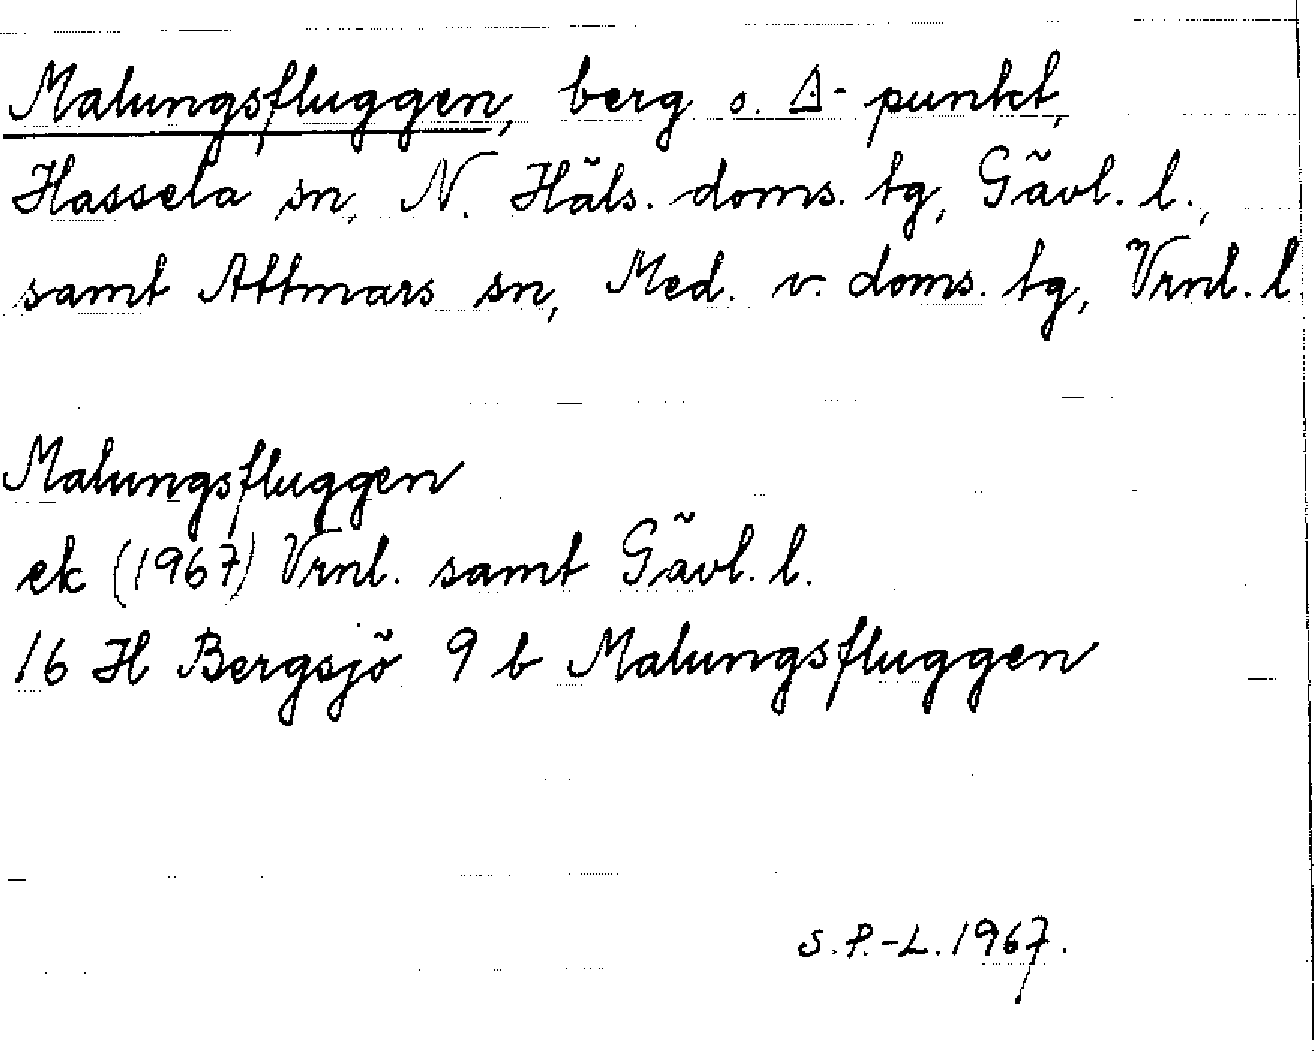 Malungsfluggen, berg o. Δ- punkt,
Hassela sn, N. Häls. doms. tg, Gävl. l.,
samt Attmars sn, Med. v. doms. tg, Vrnl. l.
Malungsfluggen
ek (1967) Vrnl. samt Gävl. l.
16 H Bergsjö 9 b Malungsfluggen
S.P.-L. 1967.